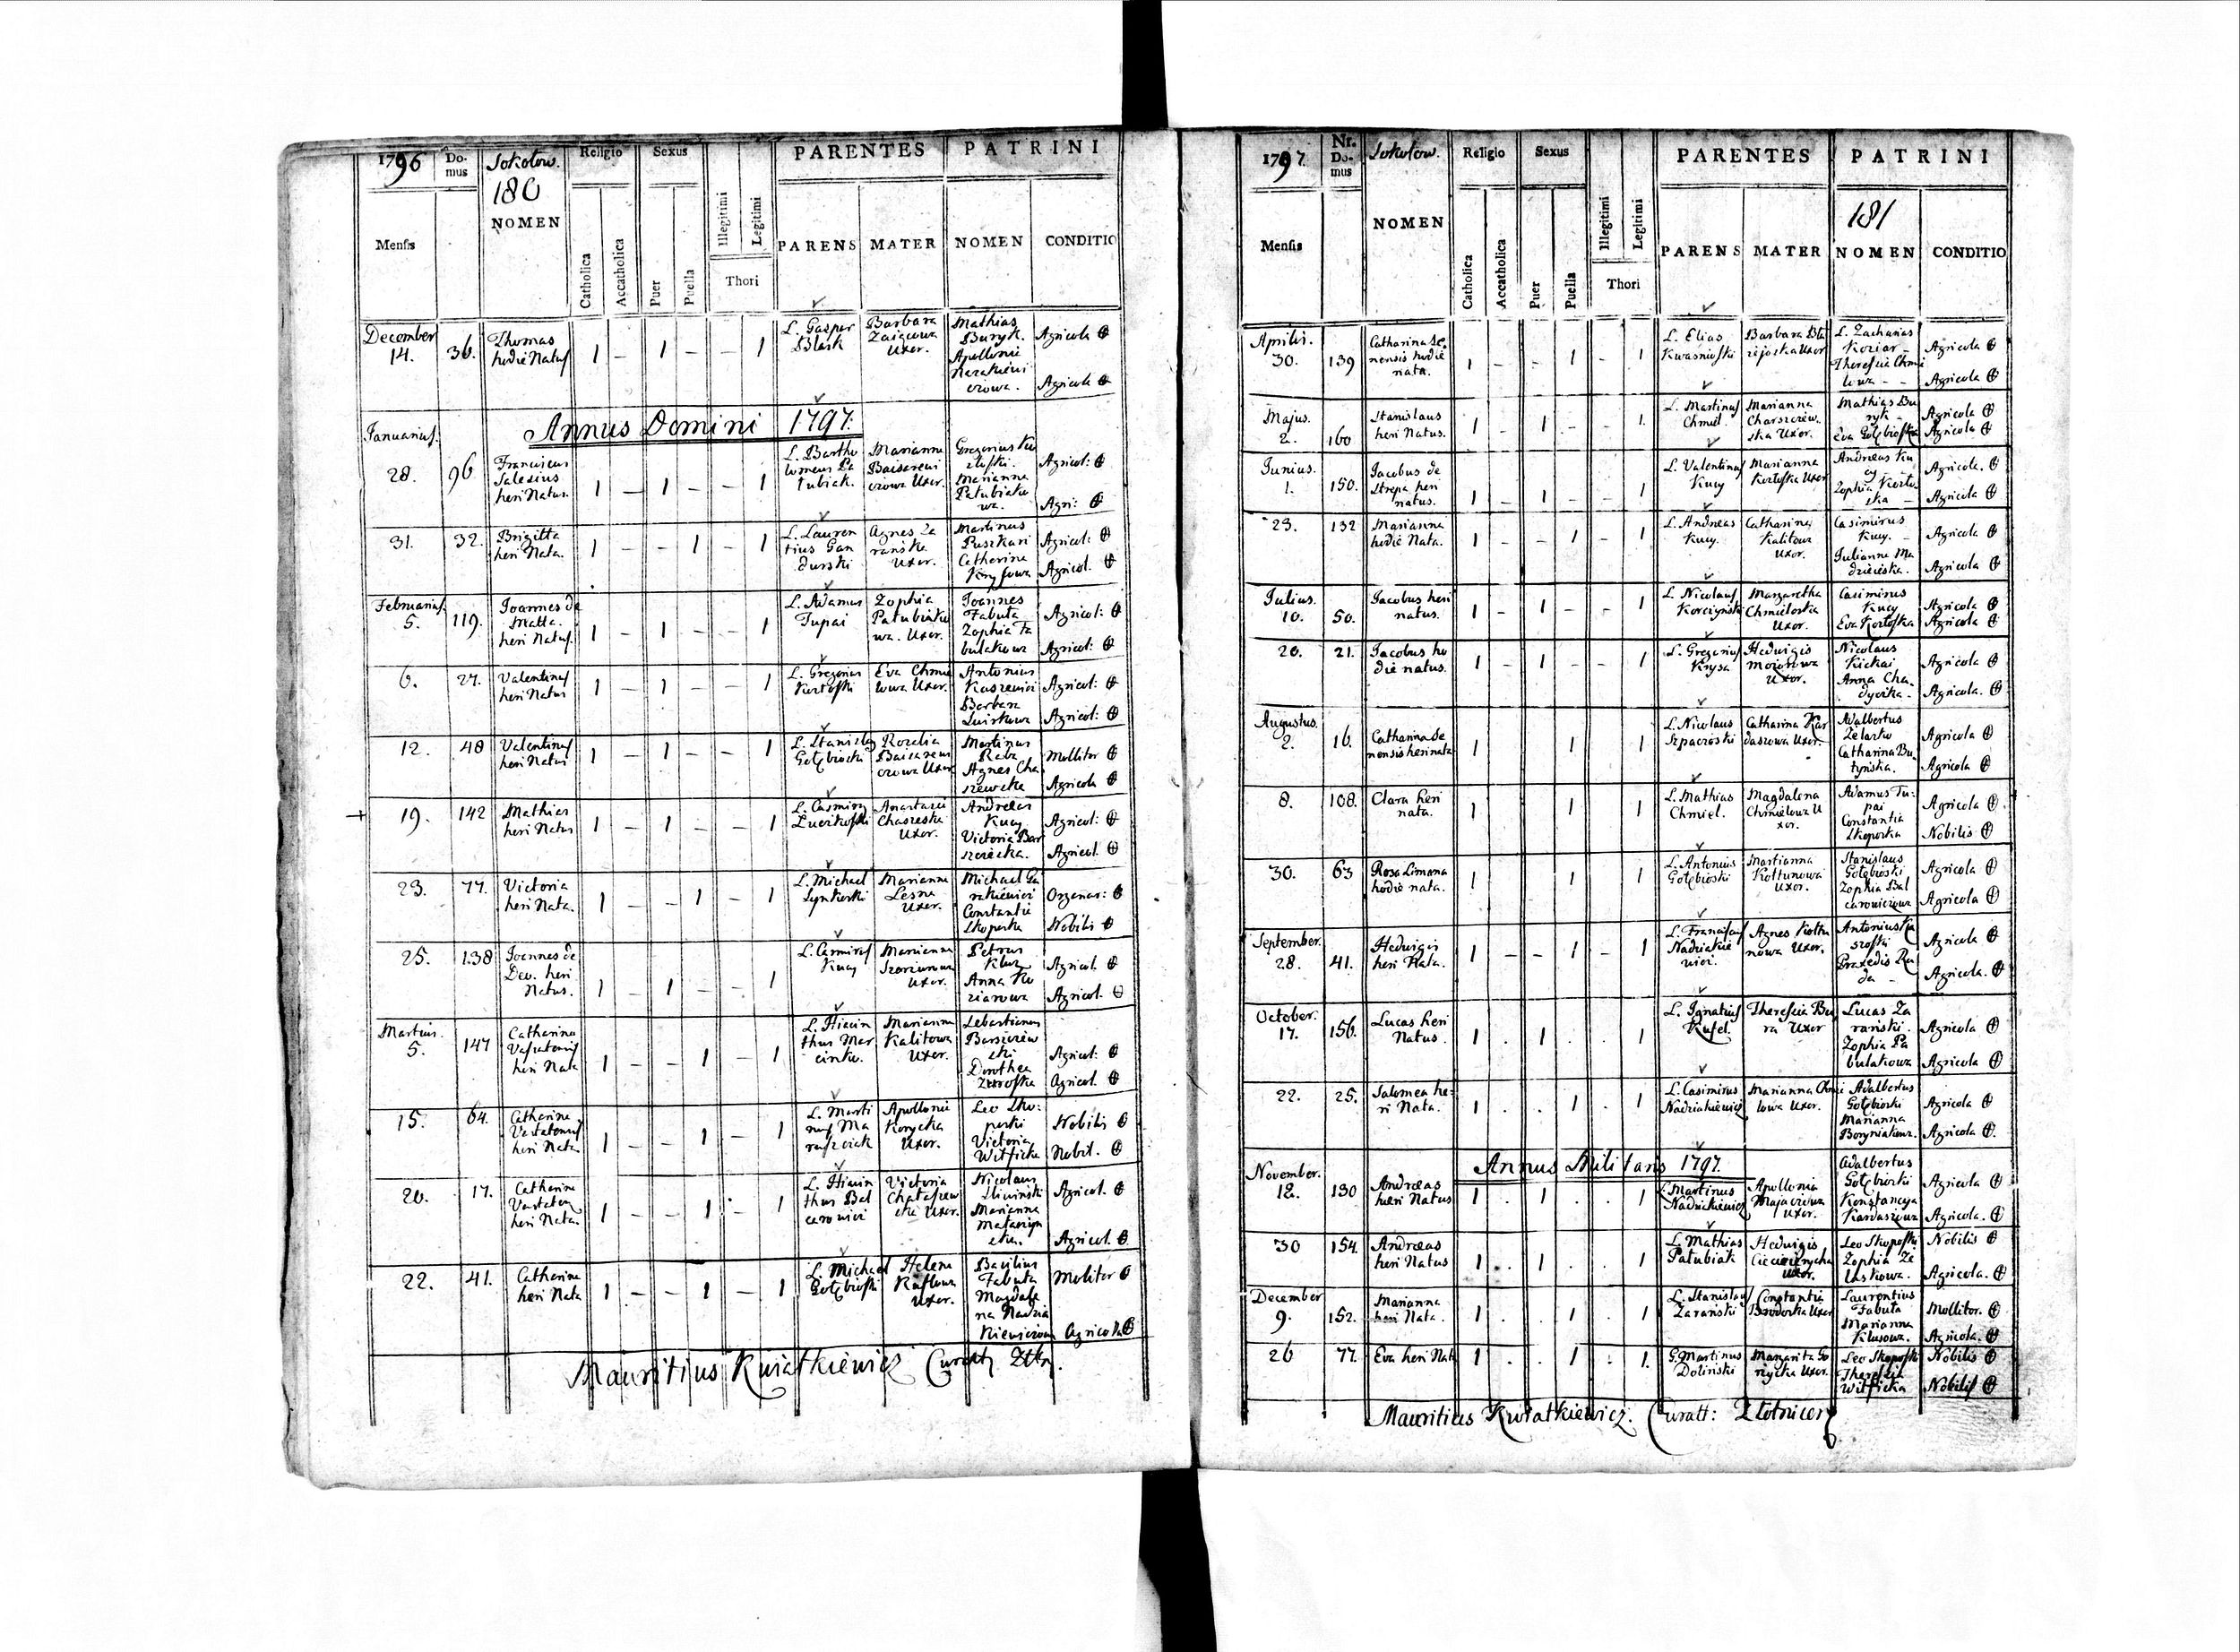 1796 Do-mus Sokołow. Religio Sexus PARENTES PATRINI
180
Mensis NOMEN Catholica Accatholica Puer Puella Illegitimi Legitimi PARENS MATER NOMEN CONDITIO
Thori
December 14. 36. Thomas hodie Natus 1 – 1 – – 1 L. Gasper Blark Barbara Uxor. Mathias Buryk. Agricola
Apollonia Agricola
Annus Domini 1797.
Januarius.
28. 96 Franciscus Salesius heri Natus. 1 – 1 – – 1 L. Bartholomeus Pałubiak. Marianna Uxor. Gregorius Agricol:
Marianna Pałubiakowa. Agri:
31. 32. Brigitta heri Nata. 1 – – 1 – 1 L. Laurentius Gandurski Agnes Zarańska Uxor. Martinus Puszkari Agricol:
Catherina Krysowa Agricol.
Februarius. 5. 119. Joannes de Matta. heri Natus. 1 – 1 – – 1 L. Adamus Tupai Zophia Pałubiakowa. Uxor. Joannes Fabuła Agricol:
Zophia Fabulakowa Agricol:
6. 27. Valentinus heri Natus 1 – 1 – – 1 L. Gregorius Kortoski Eva Chmielowa Uxor. Antonius Agricol:
Barbara Agricol:
12. 48 Valentinus heri Natus 1 – 1 – – 1 L. Stanislaus Gołębioski Rozalia Uxor Martinus Raba Mollitor
Agnes Agricola
19. 142 Mathias heri Natus 1 – 1 – – 1 L. Casimirus Anastazia Uxor. Andreas Kucy Agricol:
Victoria Agricol.
23. 77. Victoria heri Nata. 1 – – 1 – 1 L. Michael Marianna Lesna Uxor. Michael Organar:
Constantia Skoposka Nobilis
25. 138 Joannes de Deo. heri Natus. 1 – 1 – – 1 L. Casimirus Kucy Marianna Uxor. Petrus Kluz Agricol.
Anna Koziarowa Agricol.
Martius. 5. 147 Catharina heri Nata 1 – – 1 – 1 L. Hiacinthus Marcinko. Marianna Kalitowa Uxor. Sebastianus Agricol:
Dorothea Agricol.
15. 64. Catharina heri Nata 1 – – 1 – 1 L. Martinus Apollonia Korycka Uxor. Leo Skoposki Nobilis
Victoria Witficka Nobil.
20. 17. Catharina heri Nata. 1 – – 1 – 1 L. Hiacinthus Balcerowicz Victoria Uxor. Nicolaus Sliwinski Agricol.
Marianna Agricol.
22. 41. Catharina heri Nata 1 – – 1 – 1 L. Michael Gołębioski Helena Uxor. Basilius Fabuła Molitor
Magdalena Nadziakiewiczowa Agricola
Mauritius Kwiatkiewicz Curatt
1797. Nr. Do-mus Sokołow. Religio Sexus PARENTES PATRINI
181
Mensis NOMEN Catholica Accatholica Puer Puella Illegitimi Legitimi PARENS MATER NOMEN CONDITIO
Thori
Aprilis. 30. 139 Catharina Senensis hodie nata. 1 – – 1 – 1 L. Elias Kwasnioski Barbara Uxor L. Zacharias Koziar – Agricola
Theresia Chmielowa – – Agricola
Majus. 2. 160 Stanislaus heri Natus. 1 – 1 – – 1. L. Martinus Chmiel. Marianna Uxor. Mathias Buryk – Agricola
Eva Gołębioska Agricola
Junius. 1. 150. Jacobus de Strepa heri natus. 1 – 1 – – 1 L. Valentinus Kucy Marianna Kortoska Uxor Andreas Kucy – – Agricola.
Zophia Kortoska – Agricola
23. 132 Marianna hodie Nata. 1 – – 1 – 1 L. Andreas Kucy. Catharina Kalitowa Uxor. Casimirus Kucy. – Agricola
Julianna Agricola
Julius. 10. 50. Jacobus heri natus. 1 – 1 – – 1 L. Nicolaus Korczynski Margaretha Chmieloska Uxor. Casimirus Kucy Agricola
Eva Kortoska Agricola
20. 21. Jacobus hodie natus. 1 – 1 – – 1 L. Gregorius Krysa Hedwigis Uxor. Nicolaus Kickai Agricola
Anna Chadycka. Agricola.
Augustus. 2. 16. Catharina Senensis heri nata 1 1 1 L. Nicolaus Szpaczoski Catharina Kardaszowa Uxor. Adalbertus Żelazko Agricola
Catharina Butyńska. Agricola
8. 108. Clara heri nata. 1 1 1 L. Mathias Chmiel. Magdalena Chmielowa Uxor. Adamus Tupai Agricola
Constantia Skoposka Nobilis
30. 63 Rosa Limana hodie nata. 1 1 1 L. Antonius Gołębioski Marianna Kołtunowa Uxor. Stanislaus Gołębioski Agricola
Zophia Balcerowiczowa Agricola
September. 28. 41. Hedwigis heri Nata. 1 – – 1 – 1 L. Franciscus Nadziakiewicz. Agnes Kołtunowa Uxor. Antonius Agricola
Praxedis Ruda – Agricola.
October. 17. 156. Lucas heri Natus. 1 . 1 . . 1 L. Ignatius Kusel. Theresia Bura Uxor Lucas Zarański. Agricola
Zophia Pabulakowa Agricola
22. 25. Salomea heri Nata. 1 . . 1 . 1 L. Casimirus Nadziakiewicz Marianna Chmielowa Uxor. Adalbertus Gołębioski Agricola
Marianna Boryniakowa. Agricola.
Annus Militaris 1797.
November. 12. 130 Andreas heri Natus 1 . 1 . . 1 Martinus Nadziakiewicz Apollonia Uxor. Adalbertus Gołębioski Agricola
Konstancya Kardaszowa Agricola.
30 154. Andreas heri Natus 1 . 1 . . 1 L. Mathias Pałubiak Hedwigis Uxor. Leo Skoposki Nobilis
Zophia Żelaskowa. Agricola.
December 9. 152. Marianna heri Nata. 1 . . 1 . 1 L. Stanislaus Zarański Constantia Uxor Laurentius Fabuła Mollitor.
Marianna Klusowa. Agricola.
26 77. Eva heri Nata 1 . . 1 . 1. G. Martinus Dolinski Margarita Gorycka Uxor. Leo Skoposki Nobilis
Theresia Witficka Nobilis
Mauritius Kwiatkiewicz. Curatt: Zlotnicen